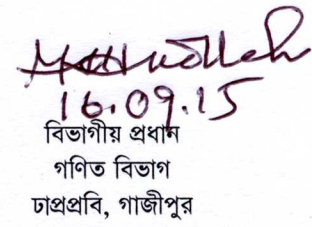 16.09.15
বিভাগীয় প্রধান
গণিত বিভাগ
ঢাপ্রপ্রবি, গাজীপুর